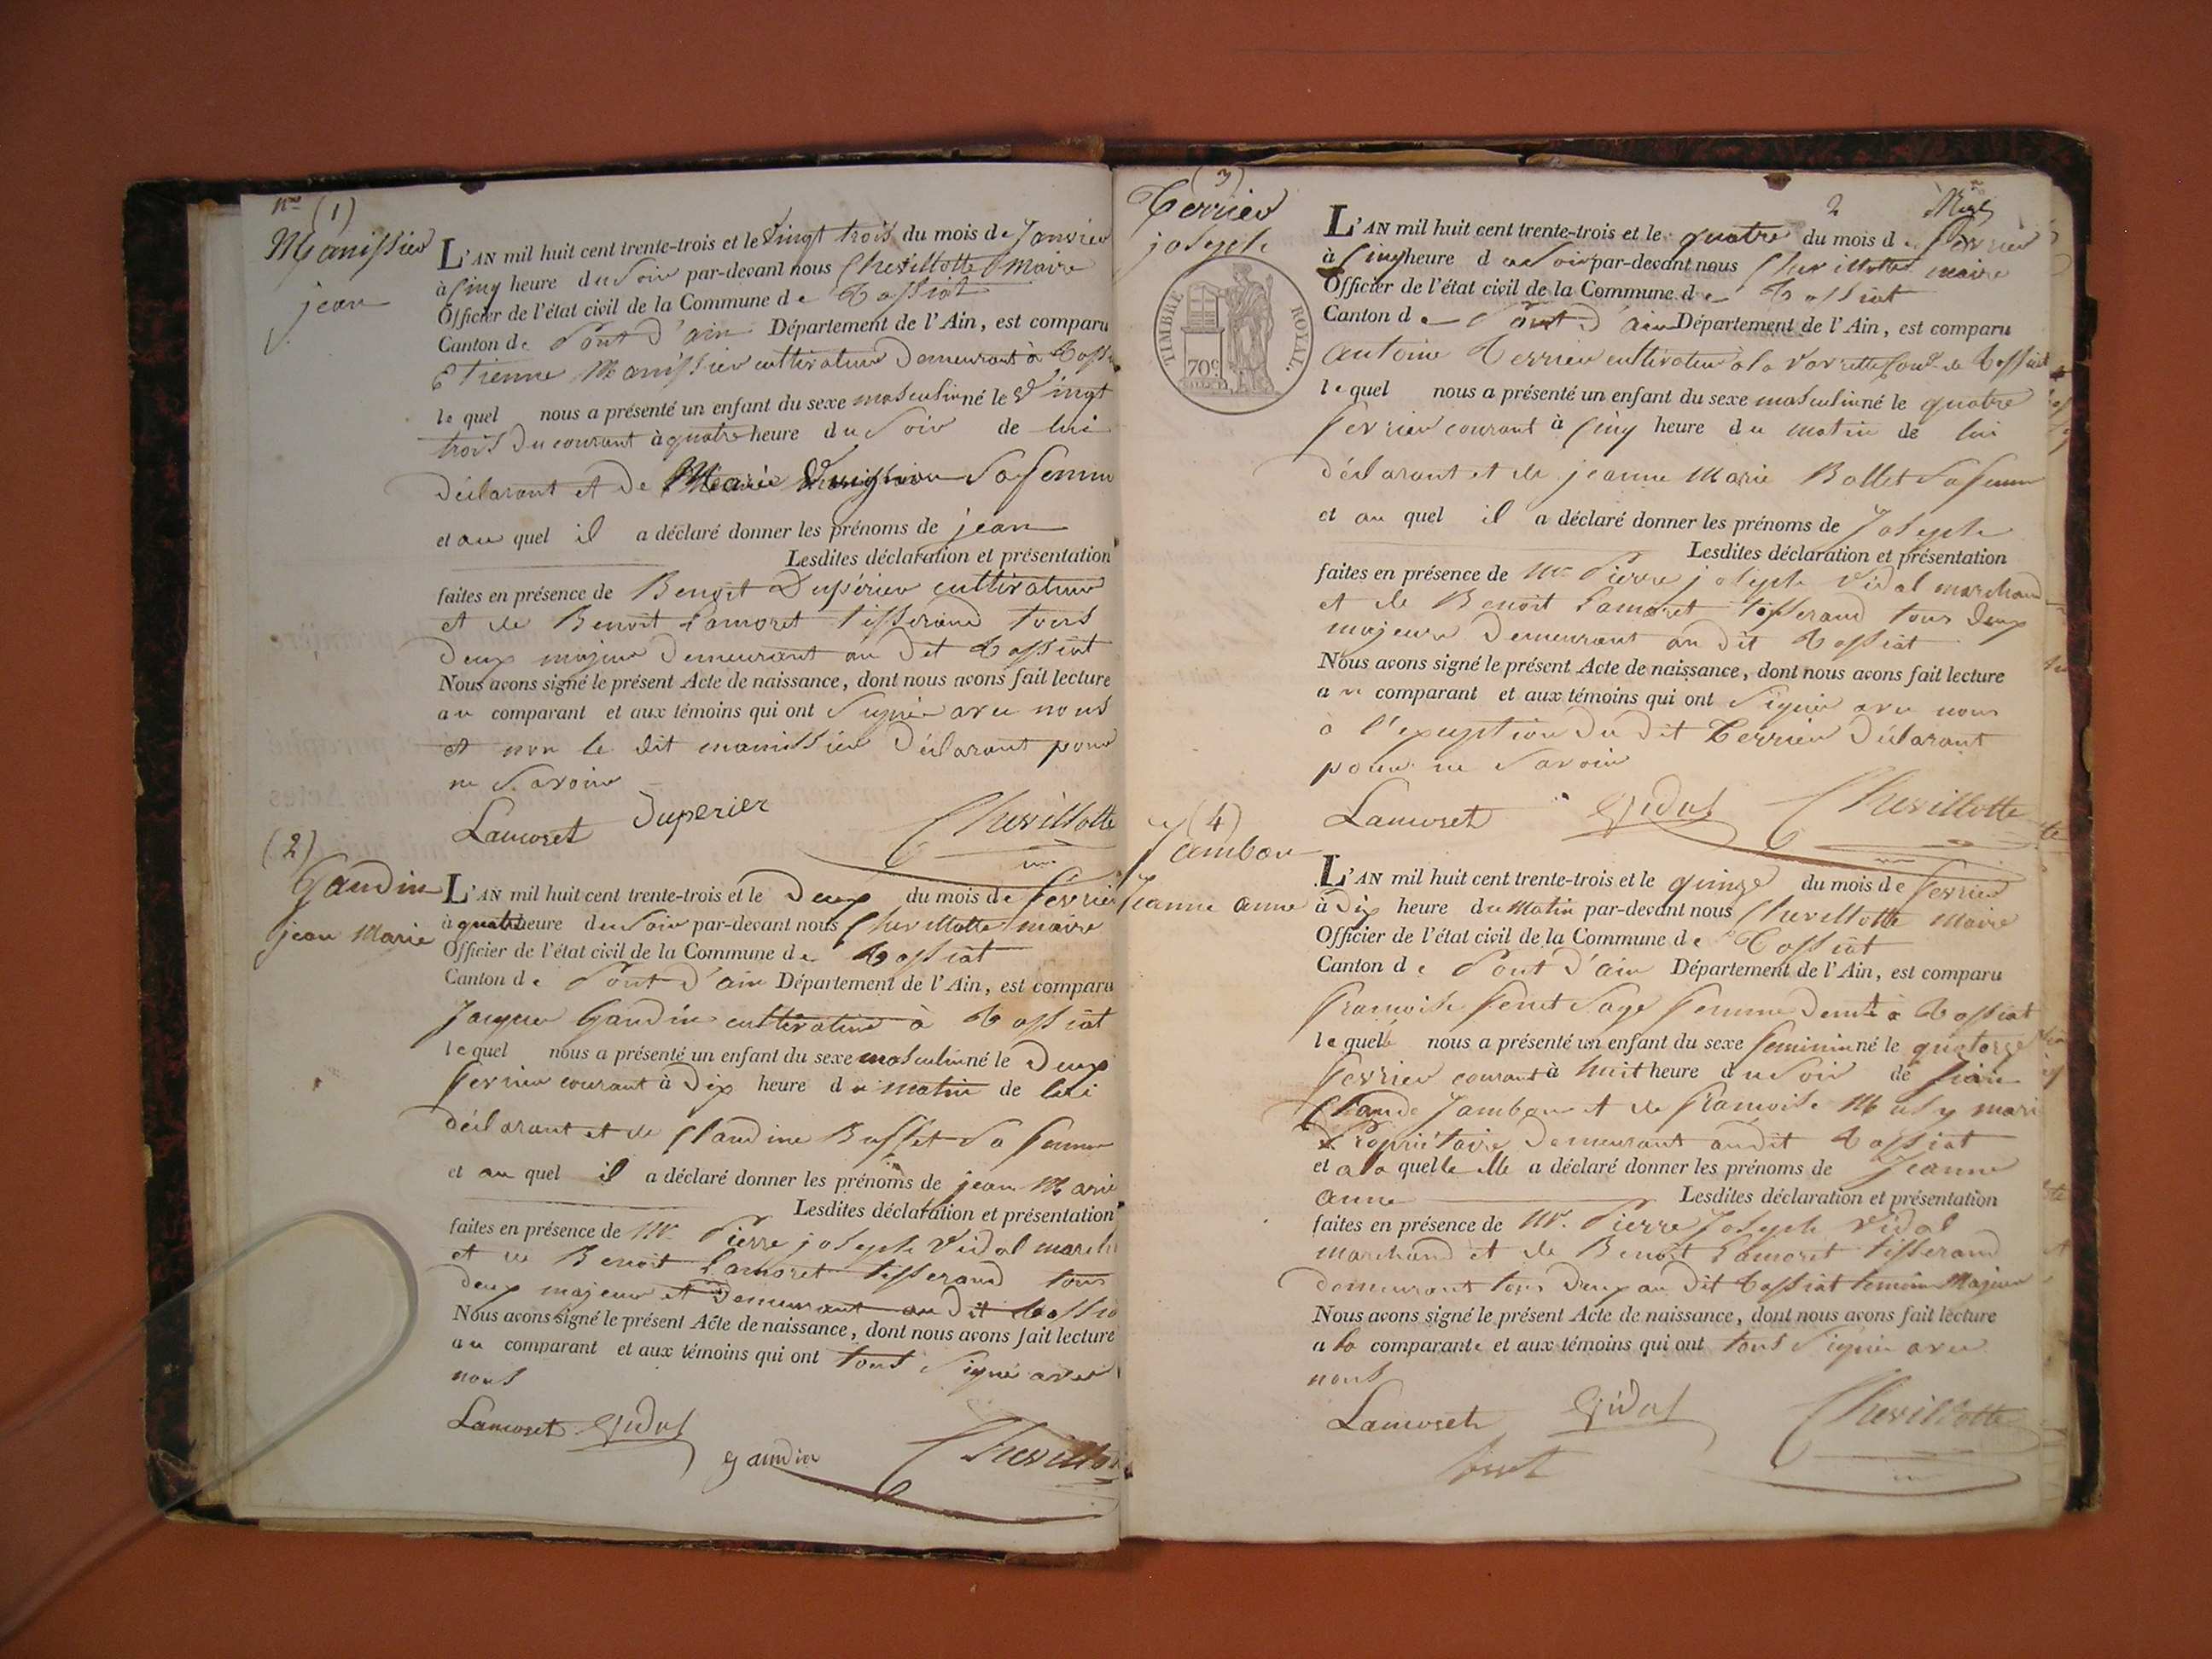 nos (1)
Manissier
jean
L'AN mil huit cent trente-trois et le Vingt trois du mois de Janvier
à Cinq heure du Soir par-devant nous Chevillotte Maire
Officier de l'état civil de la Commune de Tossiat
Canton de Pont d'ain Département de l'Ain, est comparu
Etienne Manissier cultivateur Demeurant à Toss
lequel nous a présenté un enfant du sexe masculin né le Vingt
trois Du courant à quatre heure du Soir de lui
Déclarant et De Marie Sa femme
et au quel il a déclaré donner les prénoms de jean
Lesdites déclaration et présentation
faites en présence de Benoit Dupérier cultivateur
et de Benoit Lamoret tisserand tous
Deux majeur Demeurant au Dit Tossiat
Nous avons signé le présent Acte de naissance, dont nous avons fait lecture
au comparant et aux témoins qui ont Signé avec nous
et non le dit manissier Déclarant pour
ne Savoir
Lamoret Duperier Chevillotte
(2)
Gaudin
jean Marie
L'AN mil huit cent trente-trois et le Deux du mois de fevrier
à quatre heure du Soir par-devant nous Chevillotte maire
Officier de l'état civil de la Commune de Tossiat
Canton de Pont d'ain Département de l'Ain, est comparu
Jacque Gaudin cultivateur à Tossiat
lequel nous a présenté un enfant du sexe masculin né le Deux
fevrier courant à Dix heure du matin de lui
déclarant et de Claudine Buffet Sa femme
et au quel il a déclaré donner les prénoms de jean Marie
Lesdites déclaration et présentation
faites en présence de Mr Pierre joseph Vidal march
et de Benoit Lamoret tisserand tous
deux majeur et Demeurant au Dit Tossia
Nous avons signé le présent Acte de naissance, dont nous avons fait lecture
au comparant et aux témoins qui ont tous Signé avec
nous
Lamoret Vidal
gaudin Chevillot
(3)
Terrier
joseph
TIMBRE ROYAL.
70c
2
L'AN mil huit cent trente-trois et le quatre du mois de fevrier
à Cinq heure du Soir par-devant nous Chevillotte maire
Officier de l'état civil de la Commune de Tossiat
Canton de Pont D'ain Département de l'Ain, est comparu
antoine Terrier cultivateur à la Vavrette Comne de Tossiat
lequel nous a présenté un enfant du sexe masculin né le quatre
fevrier courant à Cinq heure du matin de lui
déclarant et de jeanne Marie Bollet Sa femme
et au quel il a déclaré donner les prénoms de Joseph
Lesdites déclaration et présentation
faites en présence de Mr Pierre joseph Vidal marchand
et de Benoit Lamoret tisserand tous deux
majeur Demeurant au dit Tossiat
Nous avons signé le présent Acte de naissance, dont nous avons fait lecture
au comparant et aux témoins qui ont Signé avec nous
à l'exception Du Dit Terrier Déclarant
pour ne Savoir
Lamoret Vidal Chevillotte
(4)
Jambon
Jeanne anne
L'AN mil huit cent trente-trois et le quinze du mois de fevrier
à Dix heure du Matin par-devant nous Chevillotte Maire
Officier de l'état civil de la Commune de Tossiat
Canton de Pont D'ain Département de l'Ain, est comparu
francoise Sage femme Demt à Tossiat
la quelle nous a présenté un enfant du sexe feminin né le quatorze
fevrier courant à huit heure du Soir de
Claude Jambon et de francoise
Propriétaire Demeurant audit Tossiat
et a la quelle elle a déclaré donner les prénoms de Jeanne
anne Lesdites déclaration et présentation
faites en présence de Mr. Pierre Joseph Vidal
marchand et de Benoit Lamoret tisserand
demeurant tous Deux au Dit Tossiat temoin Majeur
Nous avons signé le présent Acte de naissance, dont nous avons fait lecture
a la comparante et aux témoins qui ont tous Signé avec
nous
Lamoret Vidal Chevillotte